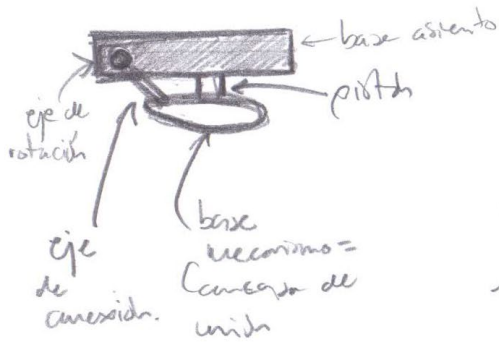 base asiento
pistón
eje de
rotación
eje
de
conexión.
base
mecanismo =
de
unión